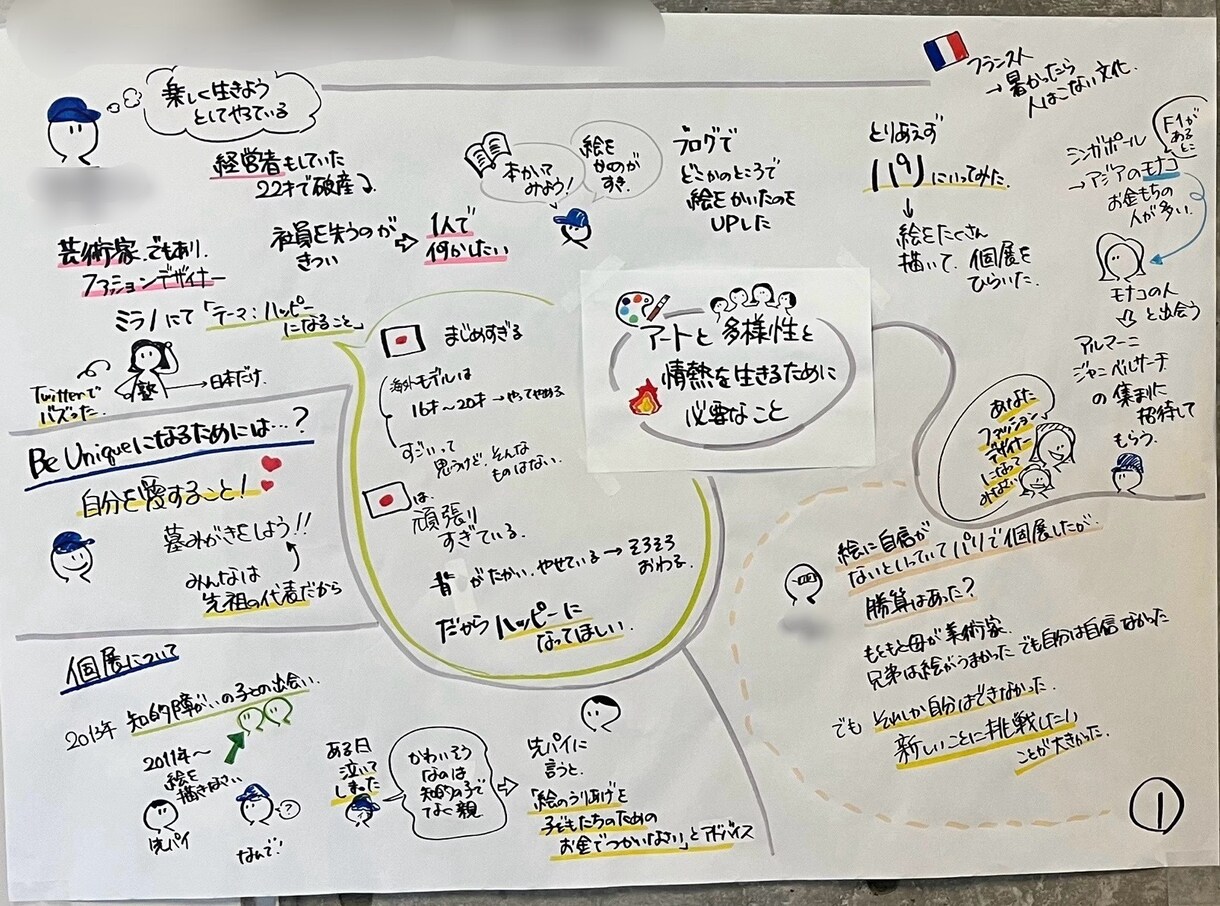 楽しく生きよう
としてやっている
経営者もしていた
22才で破産
社員を失うのが
きつい
1人で
何かしたい
芸術家でもあり
ファッションデザイナー
ミラノにて「テーマ:ハッピー
になること」
Twitterで
バズった
塾
→日本だけ
本かいて
みよう!
絵を
かくのが
すき。
ブログで
どこかのところで
絵をかいたのを
UPした
とりあえず
パリにいってみた。
↓
絵をたくさん
描いて、個展を
ひらいた。
フランス人
→暑かったら
人はこない文化.
F1が
ある
とこ
シンガポール
→アジアのモナコ
お金もちの
人が多い.
モナコの人
と出会う
アルマーニ
ジャンニベルサーチ
の集まりに
招待して
もらう.
あなた
ファッション
デザイナー
になって
みなさい
アートと多様性と
情熱を生きるために
必要なこと
まじめすぎる
海外モデルは
16才〜20才→やってやめる
すごいって
思うけど、そんな
ものはない.
は、
頑張り
すぎている.
背がたかい、やせている→そろそろ
おわる.
だからハッピーに
なってほしい.
Be Uniqueになるためには…?
自分を愛すること!
墓みがきをしよう!!
みんなは
先祖の代表だから
個展について
2013年 知的障がいの子との出会い.
2011年〜
絵を
描きなさい
先パイ
?
なんで!
ある日
泣いて
しまった
かわいそう
なのは
知的の子で
なく親
先パイに
言うと、
「絵のうりあげを
子どもたちのための
お金でつかいなさい」とアドバイス
絵に自信が
ないといっていてパリで個展したが、
勝算はあった?
もともと母が美術家.
兄弟は絵がうまかった でも自分は自信なかった
でも それしか自分はできなかった.
新しいことに挑戦したい
ことが大きかった.
1